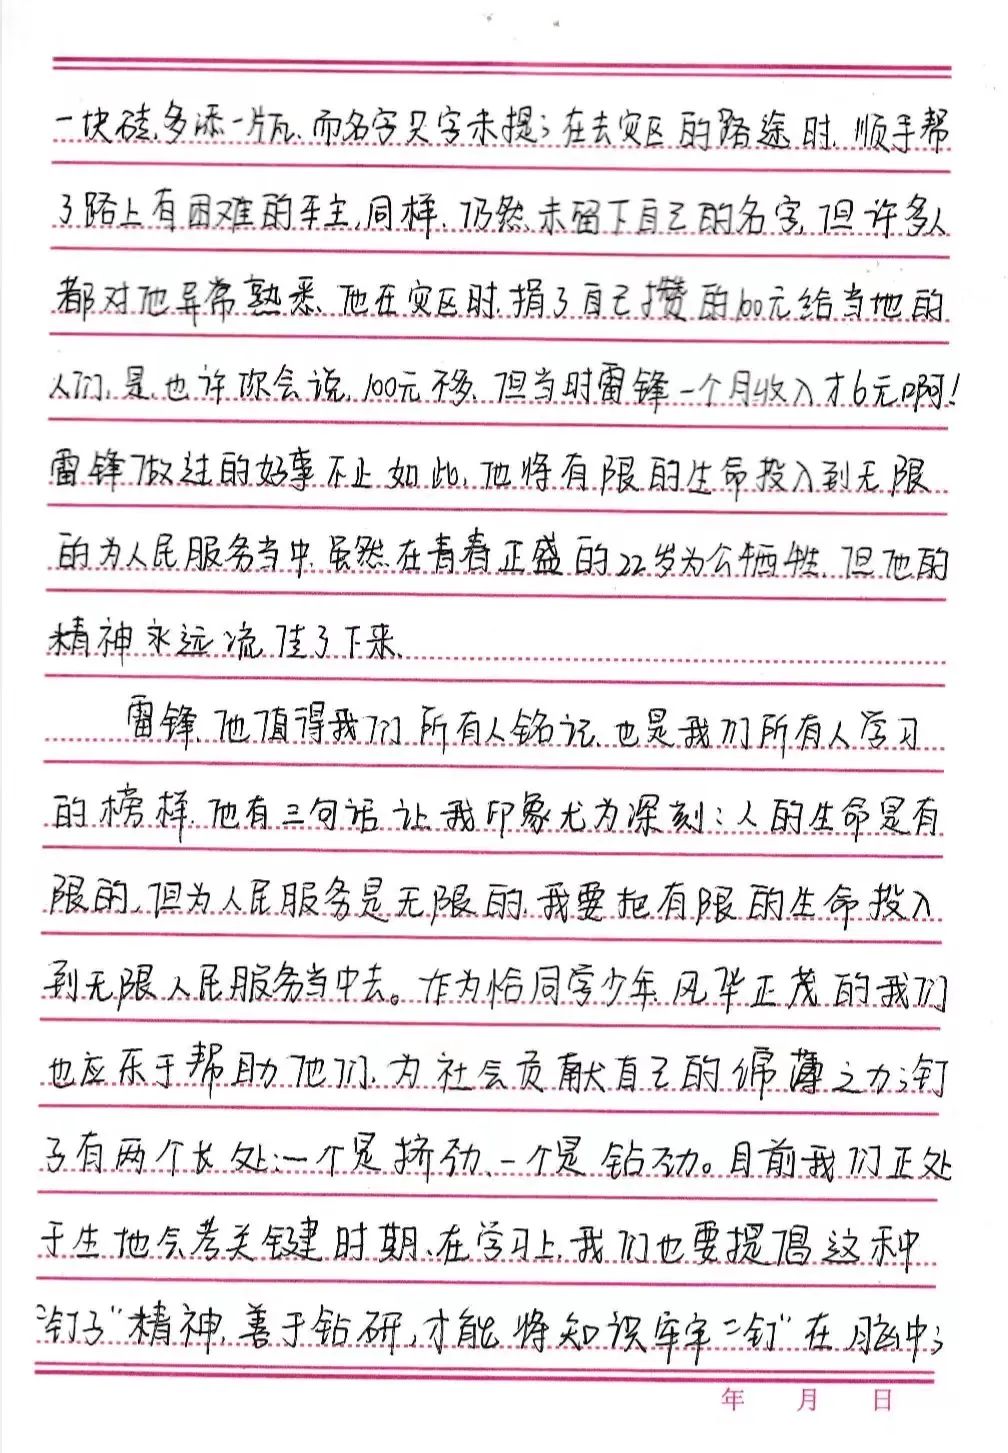 一块砖,多添一片瓦,而名字只字未提;在去灾区的路途时,顺手帮
了路上有困难的车主,同样,仍然未留下自己的名字,但许多人
都对他异常熟悉,他在灾区时,捐了自己攒的100元给当地的
人们,是,也许你会说,100元不多,但当时雷锋一个月收入才6元啊!
雷锋做过的好事不止如此,他将有限的生命投入到无限
的为人民服务当中,虽然在青春正盛的22岁为公牺牲,但他的
精神永远流传了下来,
雷锋,他值得我们所有人铭记,也是我们所有人学习
的榜样,他有三句话让我印象尤为深刻:人的生命是有
限的,但为人民服务是无限的,我要把有限的生命投入
到无限人民服务当中去。作为恰同学少年,风华正茂的我们
也应乐于帮助他们,为社会贡献自己的绵薄之力;钉
子有两个长处:一个是挤劲、一个是钻劲。目前我们正处
于生地会考关键时期,在学习上,我们也要提倡这种
“钉子”精神,善于钻研,才能将知识牢牢“钉”在脑中;
年 月 日